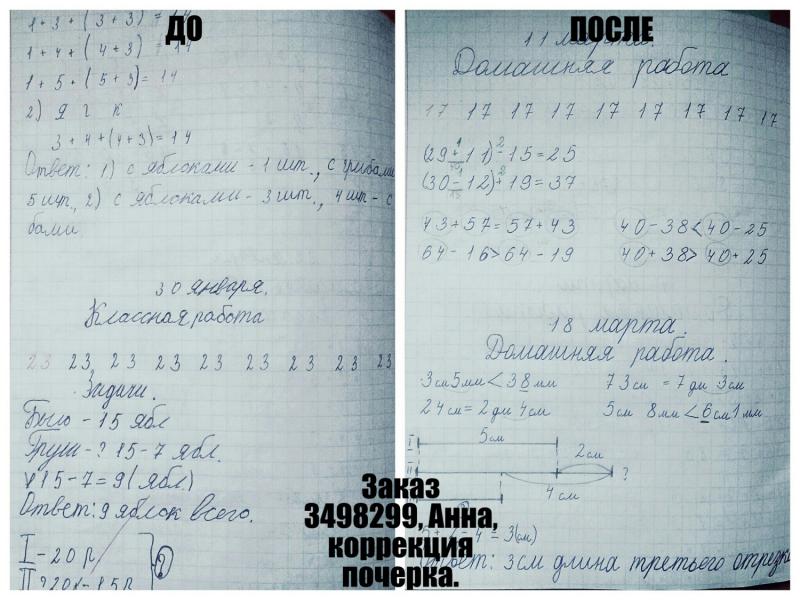 ДО
1+3+(3+3)=14
1+4+(4+3)=14
1+5+(5+3)=14
2) Я Г К
3+4+(4+3)=14
Ответ: 1) с яблоками - 1 шт., с грибами
5 шт., 2) с яблоками - 3 шт., 4 шт - с
бами
30 января.
Классная работа
23 23 23 23 23 23 23 23 23
Задачи.
Было - 15 ябл
Груш - ? 15-7 ябл.
15-7=9(ябл)
Ответ: 9 яблок всего.
I - 20 р
II ? 20 - 15 р
?
ПОСЛЕ
11 марта.
Домашняя работа
17 17 17 17 17 17 17 17 17
(29+11)-15=25
(30-12)+19=37
43+57=57+43 40-38<40-25
64-16>64-19 40+38>40+25
18 марта.
Домашняя работа.
3см5мм<38мм 73см=7дм 3см
24см=2дм 4см 5см 8мм<6см1мм
I 5см
II 2см ?
4см
=3(см)
Ответ: 3см длина третьего отрезка
Заказ
3498299, Анна,
коррекция
почерка.